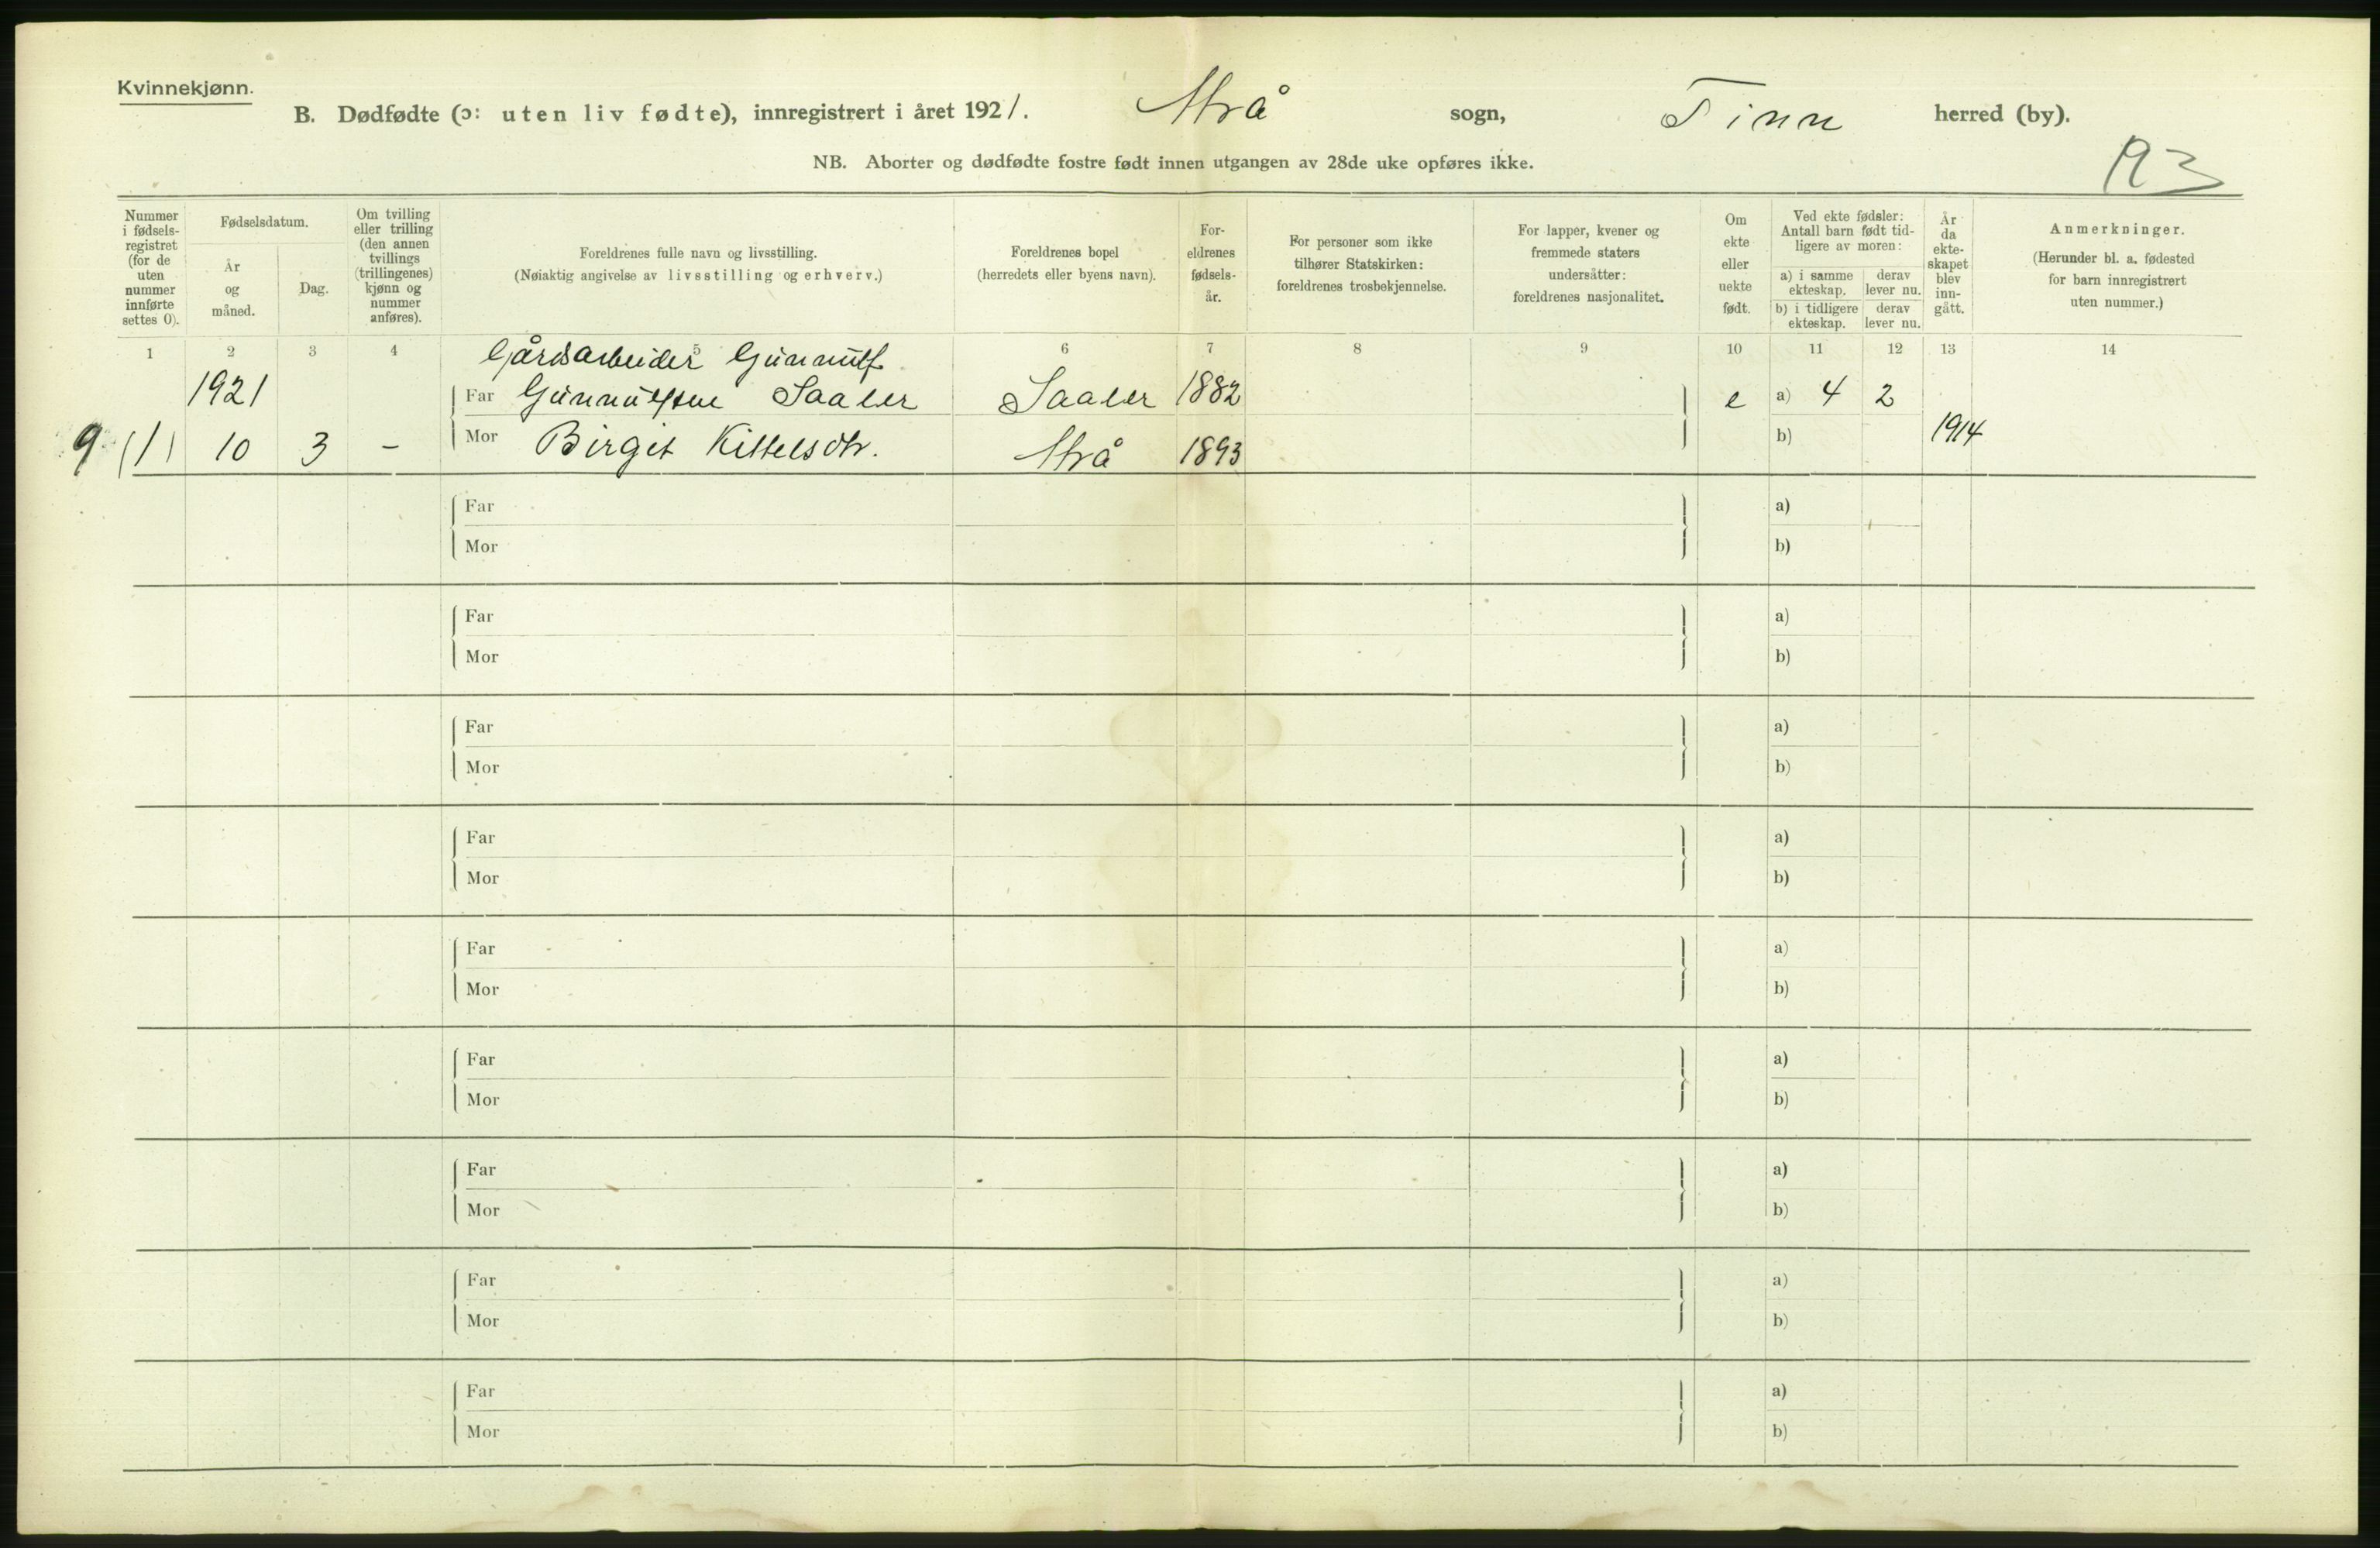 Kvinnekjønn.
B. Dødfødte (ɔ: uten liv fødte), innregistrert i året 1921. Atrå sogn, Tinn herred (by).
NB. Aborter og dødfødte fostre født innen utgangen av 28de uke opføres ikke.
193
Nummer i fødsels- registret (for de uten nummer innførte settes 0).
Fødselsdatum.
År og måned.
Dag.
Om tvilling eller trilling (den annen tvillings (trillingenes) kjønn og nummer anføres).
Foreldrenes fulle navn og livsstilling.
(Nøiaktig angivelse av livsstilling og erhverv.)
Foreldrenes bopel
(herredets eller byens navn).
For- eldrenes fødsels- år.
For personer som ikke tilhører Statskirken: foreldrenes trosbekjennelse.
For lapper, kvener og fremmede staters undersåtter: foreldrenes nasjonalitet.
Om ekte eller uekte født.
Ved ekte fødsler: Antall barn født tid- ligere av moren:
a) i samme ekteskap.
derav lever nu.
b) i tidligere ekteskap.
derav lever nu.
År da ekte- skapet blev inn- gått.
Anmerkninger.
(Herunder bl. a. fødested for barn innregistrert uten nummer.)
1 2 3 4 5 6 7 8 9 10 11 12 13 14
Gårdsarbeider Gunnulf
1921 Far Gunnulfsen Saaler Saaler 1882 e a) 4 2
9 (1) 10 3 – Mor Birgit Kittelsdtr. Atrå 1893 b) 1914
Far a)
Mor b)
Far a)
Mor b)
Far a)
Mor b)
Far a)
Mor b)
Far a)
Mor b)
Far a)
Mor b)
Far a)
Mor b)
Far a)
Mor b)
Far a)
Mor b)